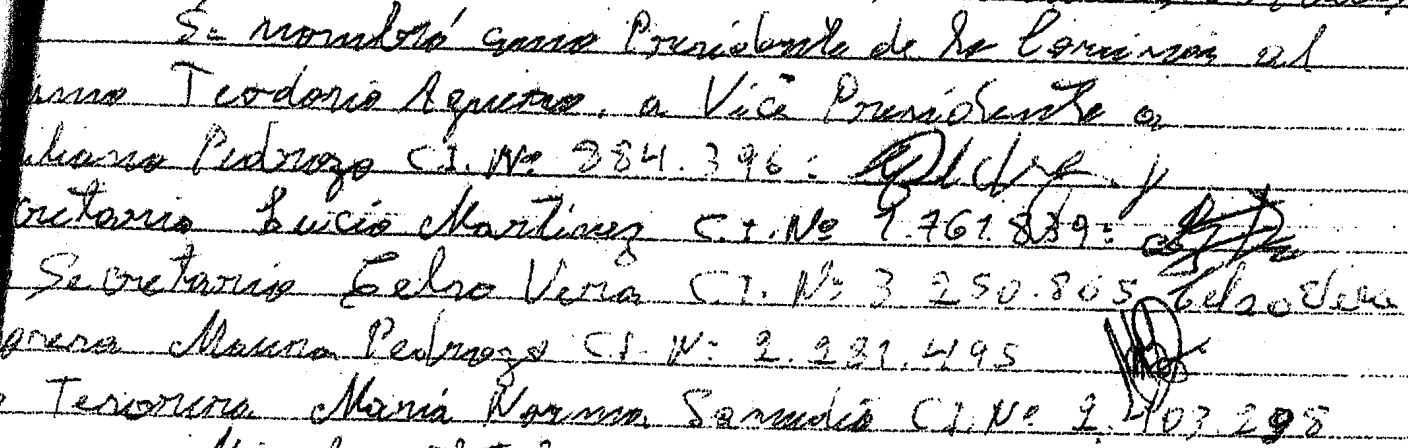 Se nombró como Presidente de la Comision al
Teodoro Aguero, a Vice Presidente a
Pedrozo C.I. Nº 884.396:
cretario Lucio Martinez C.I. Nº 1.761.839:
Secretario Celso Vera C.I. Nº 3 250.805 Celso Vera
orera Mauna Pedrozo C.I. Nº 2.281.495
Tesorera Maria Norma Samudio C.I. Nº 2.403.298